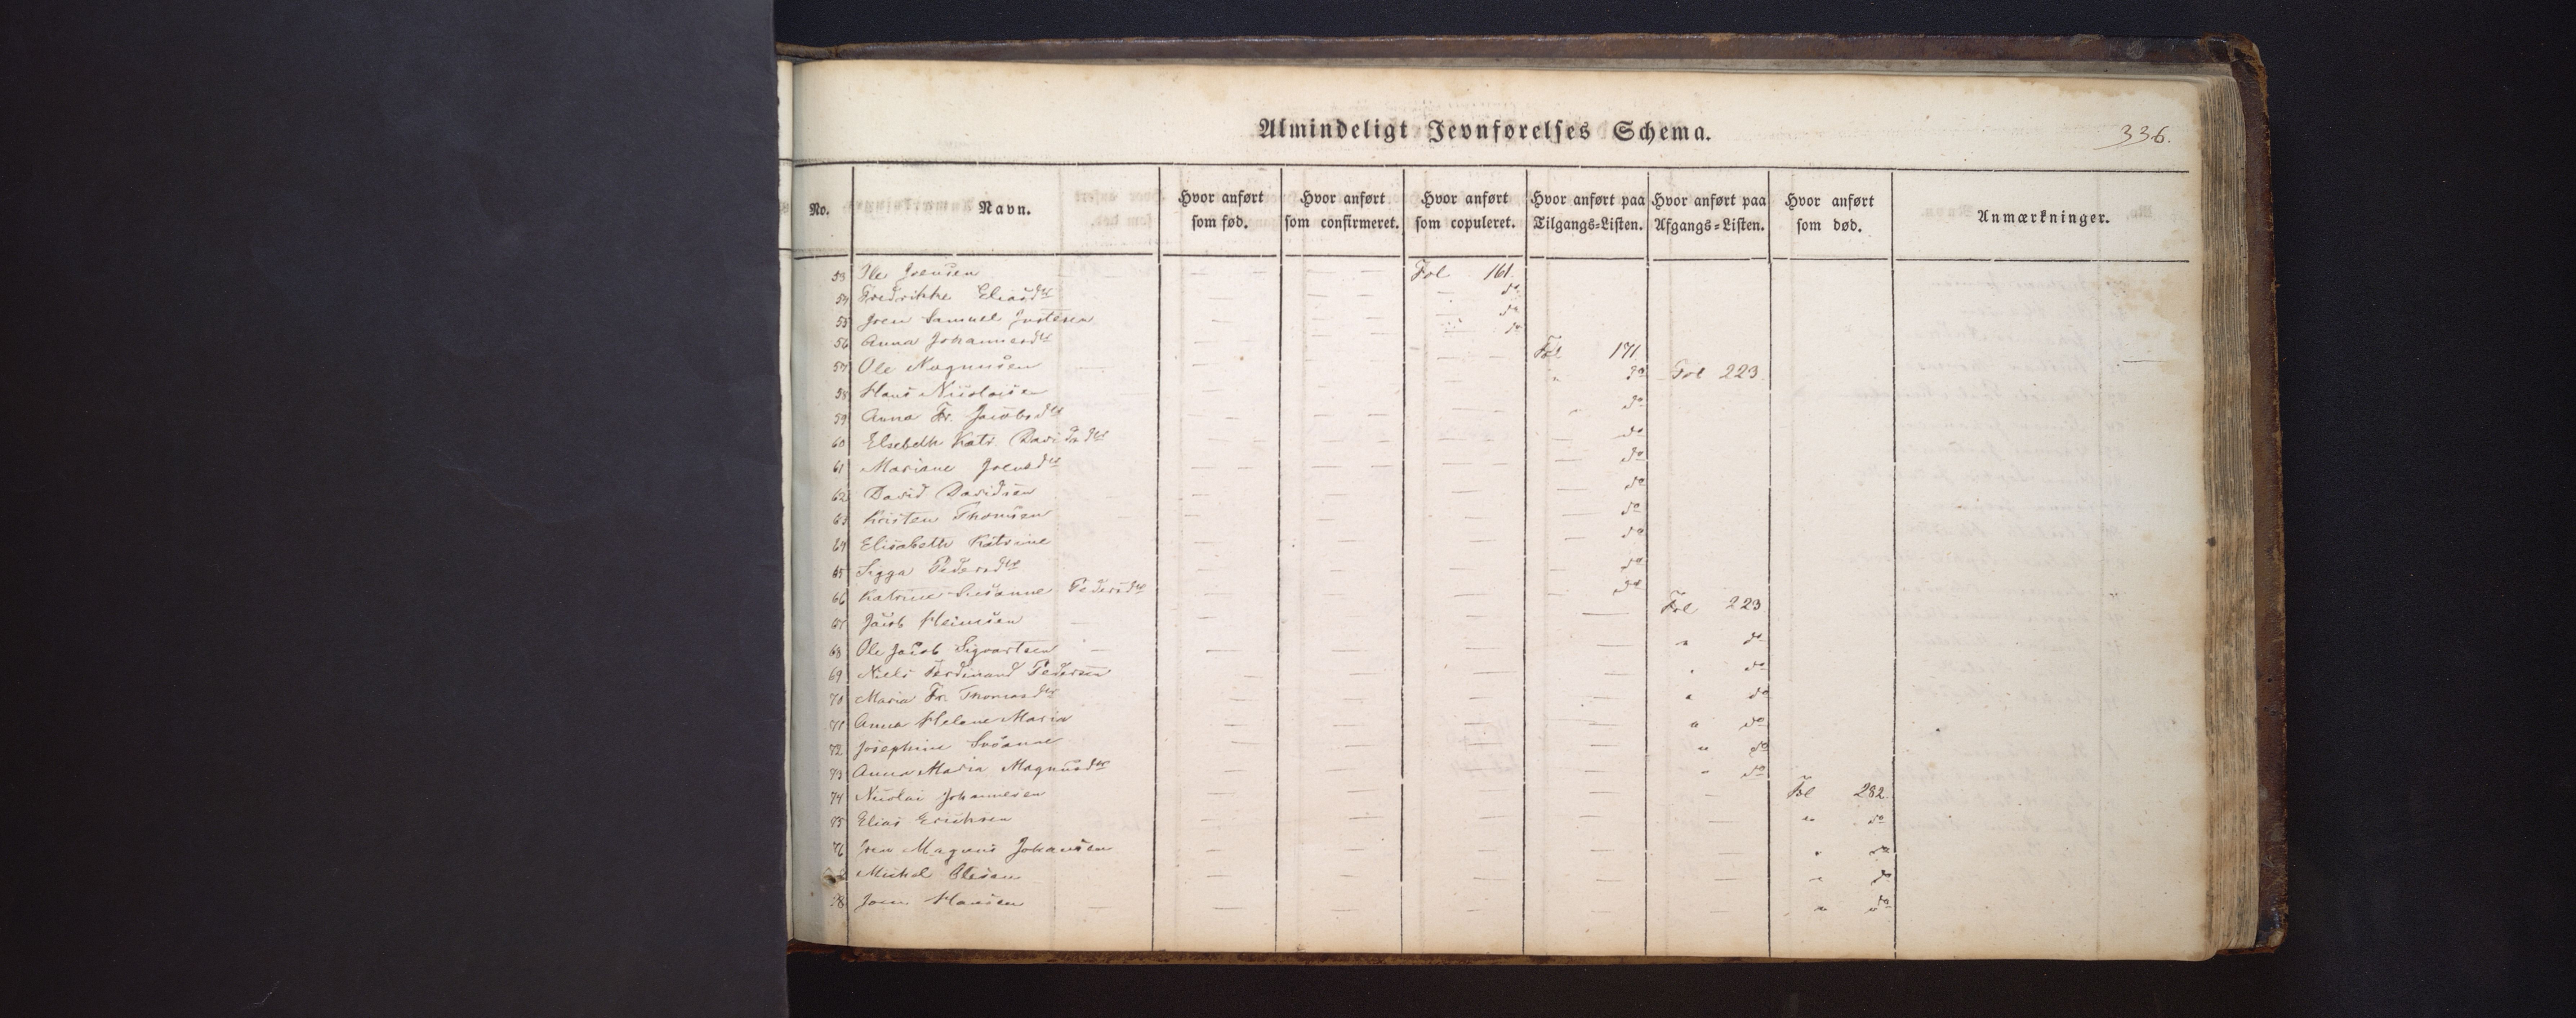 Almindeligt Jevnførelses Schema.
336.
No. Navn. Hvor anført som fød. Hvor anført som confirmeret. Hvor anført som copuleret. Hvor anført paa Tilgangs-Listen. Hvor anført paa Afgangs-Listen. Hvor anført som død. Anmærkninger.
53 Ole Joensen — — — — Fol 161.
54 Fredrikke Eliasdtr — — — — do
55 Joen Samuel Justesen — — — do
56 Anna Johannesdtr — — — do
57 Ole Magnusen — — — Fol 171
58 Hans Nicolaisen — — — " do Fol 223.
59 Anna Fr. Jacobsdtr — — — do
60 Elsebeth Katr. Davidsdtr — — — — do
61 Mariane Joensdtr — — — — do
62 David Davidsen — — — — do
63 Kristen Thomsen — — — — do
64 Elisabeth Katrine — — — — do
65 Sigga Pedersdtr — — — do
66 Katrine Susanne Pedersdtr — — — — do
67 Jacob Heinesen — — — — Fol 223
68 Ole Jacob Sigvartsen — — — — " do
69 Niels Ferdinand Pedersen — — — — " do
70 Maria Fr. Thomasdtr — — — — " do
71 Anna Helene Maria — — — — " do
72 Josephine Susanne — — — — " do
73 Anna Maria Magnusdtr — — — — " do
74 Nicolai Johannesen — — — — — Fol 282.
75 Elias Eriksen — — — — — " do
76 Joen Magnus Johansen — — — — — " do
Michel Olesen — — — — — " do
78 Joen Hansen — — — — — " do